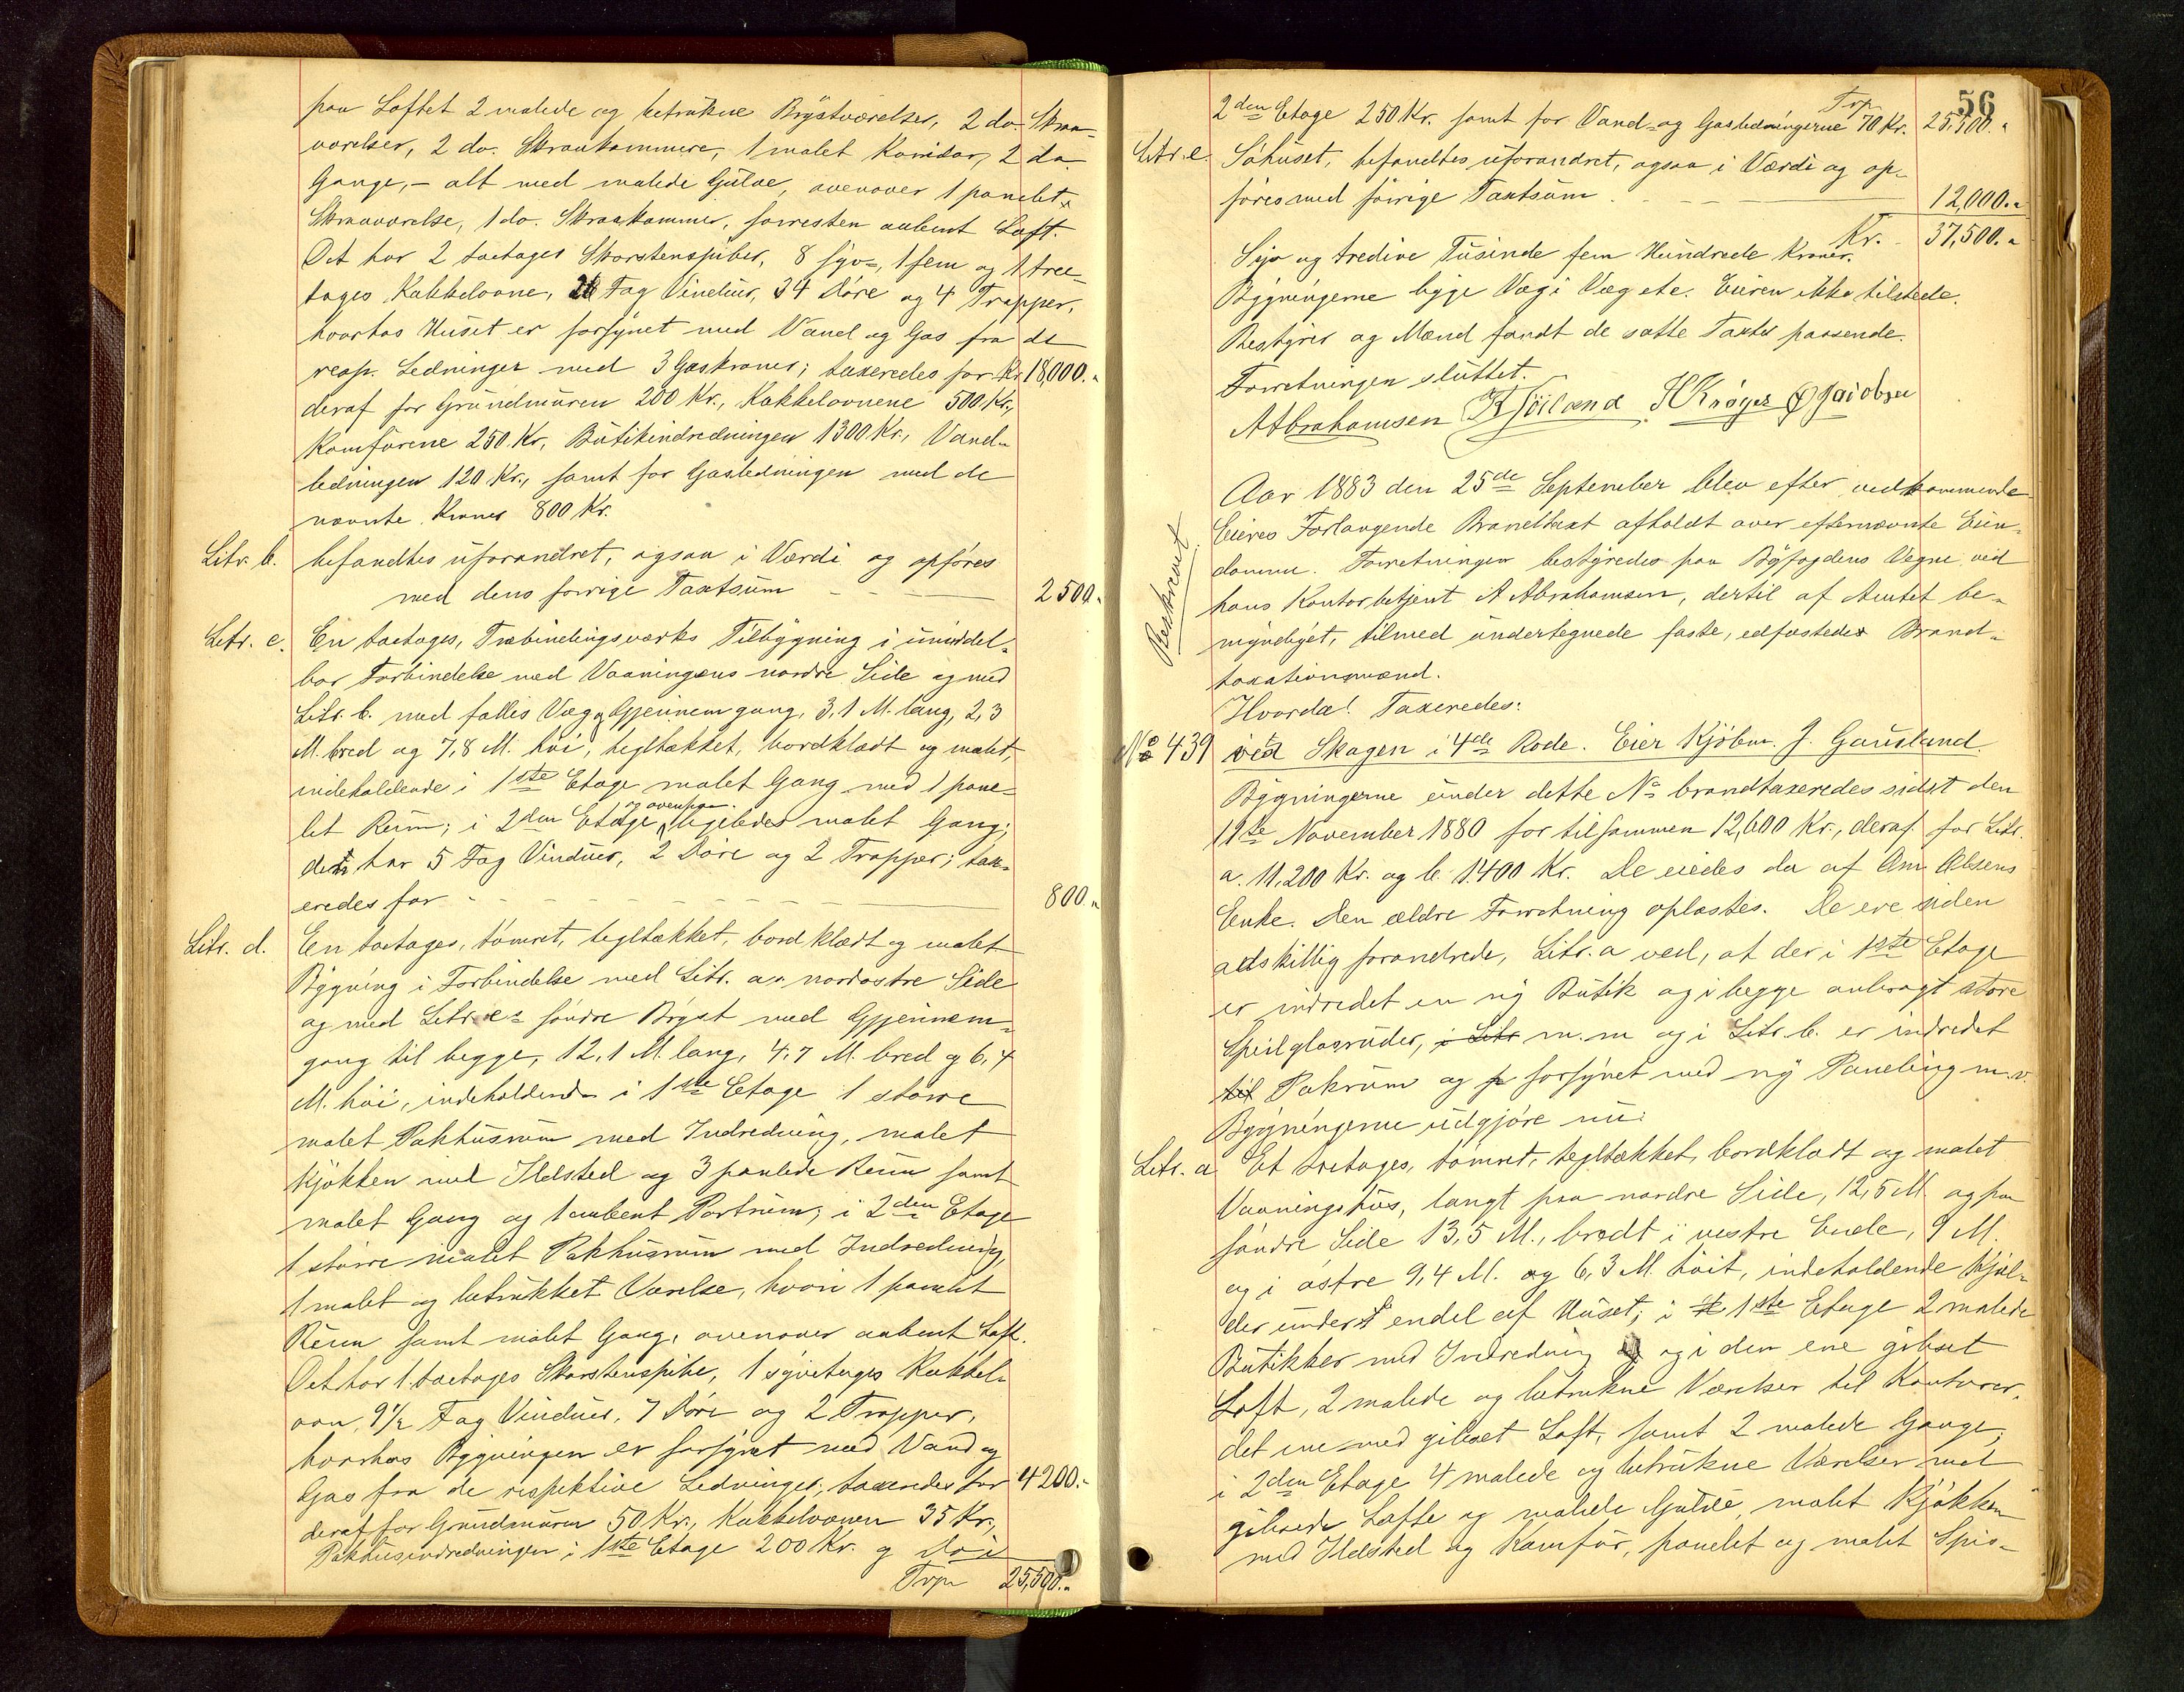 paa Loftet 2 malede og betrukne Brystværelser, 2 do. Skraa-
værelser, 2 do. Skraakammere, 1 malet Korridor, 2 do
Gange, – alt med malede Gulve, ovenover 1 panelet
Skraaværelse, 1 do. Skraakammer, forresten aabent Loft.
Det har 2 toetages Skorstenspiber, 8 syv-, 1 fem og 1 tree-
tages Kakkelovne, Fag Vinduer, 34 Døre og 4 Trapper,
hvorhos Huset er forsynet med Vand og Gas fra de
resp. Ledninger med 3 Gaskroner; taxeredes for Kr. 18,000.„
deraf for Grundmuren 200 Kr., Kakkelovnene 500 Kr.,
Komfurene 250 Kr., Butikindredningen 1300 Kr., Vand-
ledningen 120 Kr., samt for Gasledningen med de
nævnte Kroner 800 Kr.
Litr. b. befandtes uforandret, ogsaa i Værdi og opføres
med dens forrige Taxtsum – – – 2500.„
Litr. c. En toetages, Træbindingsværks Tilbygning i umiddel-
bar Forbindelse med Vaaningens nordre Side og med
Litr. b. med fælles Væg og Gjennemgang, 3,1 M. lang, 2,3
M. bred og 7,8 M. høi, tegltækket, bordklædt og malet,
indeholdende i 1ste Etage malet Gang med 1 pane-
let Rum; i 2den Etage og ovenpaa ligeledes malet Gang;
det har 5 Fag Vinduer, 2 Døre og 2 Trapper; tax-
eredes for – – – 800.„
Litr. d. En toetages, tømret, tegltækket, bordklædt og malet
Bygning i Forbindelse med Litr. a's nordøstre Side
og med Litr. e's søndre Bryst med Gjennem-
gang til begge, 12,1 M. lang, 4,7 M. bred og 6,4
M. høi, indeholdende i 1ste Etage 1 større
malet Pakhusrum med Indredning, malet
Kjøkken med Ildsted og 3 panlede Rum samt
malet Gang og 1 aabent Portrum; i 2den Etage
1 større malet Pakhusrum med Indredning,
1 malet og betrukket Værelse, hvori 1 panelet
Rum samt malet Gang, ovenover aabent Loft.
Det har 1 toetages Skorstenspibe, 1 syvetages Kakkel-
ovn, 9½ Fag Vinduer, 7 Døre og 2 Trapper,
hvorhos Bygningen er forsynet med Vand og
Gas fra de respektive Ledninger; taxeredes for 4200.-
deraf for Grundmuren 50 Kr., Kakkelovnen 35 Kr.,
Pakhusindredningen i 1ste Etage 200 Kr. og do i
Trp 25,500.„
56
Trp.
2den Etage 250 Kr. samt for Vand- og Gasledningerne 70 Kr. 25,500.„
Litr. e. Søhuset, befandtes uforandret, ogsaa i Værdi og op-
føres med forrige Taxtsum . – – – 12,000.„
Kr. 37,500.„
Syv og tredive Tusinde fem Hundrede Kroner.
Bygningerne ligge Væg i Væg etc. Eieren ikke tilstede.
Bestyrer og Mænd fandt de satte Taxter passende.
Forretningen sluttet.
A Abrahamsen K Höiland H Kröger O Jacobsen
Aar 1883 den 25de September blev efter vedkommende
Eieres Forlangende Brandtaxt afholdt over efternævnte Eien-
domme. Forretningen bestyredes paa Byfogdens Vegne ved
hans Kontorbetjent A Abrahamsen, dertil af Amtet be-
myndiget, tilmed undertegnede faste, edfæstede Brand-
taxationsmænd.
Beskrevet
Hvorda! Taxeredes:
No 439 ved Skagen i 4de Rode. Eier Kjøbm. J. Gausland.
Bygningerne under dette No brandtaxeredes sidst den
11te November 1880 for tilsammen 12,600 Kr., deraf for Litr.
a. 11,200 Kr. og b. 1400 Kr. De eiedes da af Am. Olsens
Enke. Den ældre Forretning oplæstes. De ere siden
adskillig forandrede, Litr. a ved, at der i 1ste Etage
er indredet en ny Butik og i begge anbragt store
Speilglasruder, i Litr m. m og i Litr. b. er indredet
til Pakrum og forsynet med ny Paneling m. v.
Bygningerne udgjøre nu:
Litr. a Et toetages, tømret, tegltækket, bordklædt og malet
Vaaningshus, langt paa nordre Side, 12,5 M. og paa
søndre Side 13,5 M., bredt i vestre Ende, 9 M.
og i østre 9,4 M. og 6,3 M. høit, indeholdende Kjæl-
der under endel af Huset; i 1ste Etage 2 malede
Butikker med Indredning og i den ene gibset
Loft, 2 malede og betrukne Værelser til Kontorer,
det ene med gibset Loft, samt 2 malede Gange;
i 2den Etage 4 malede og betrukne Værelser med
gibsede Lofte og malede Gulve, malet Kjøkken
med Ildsted og Komfur, panelet og malet Spis-